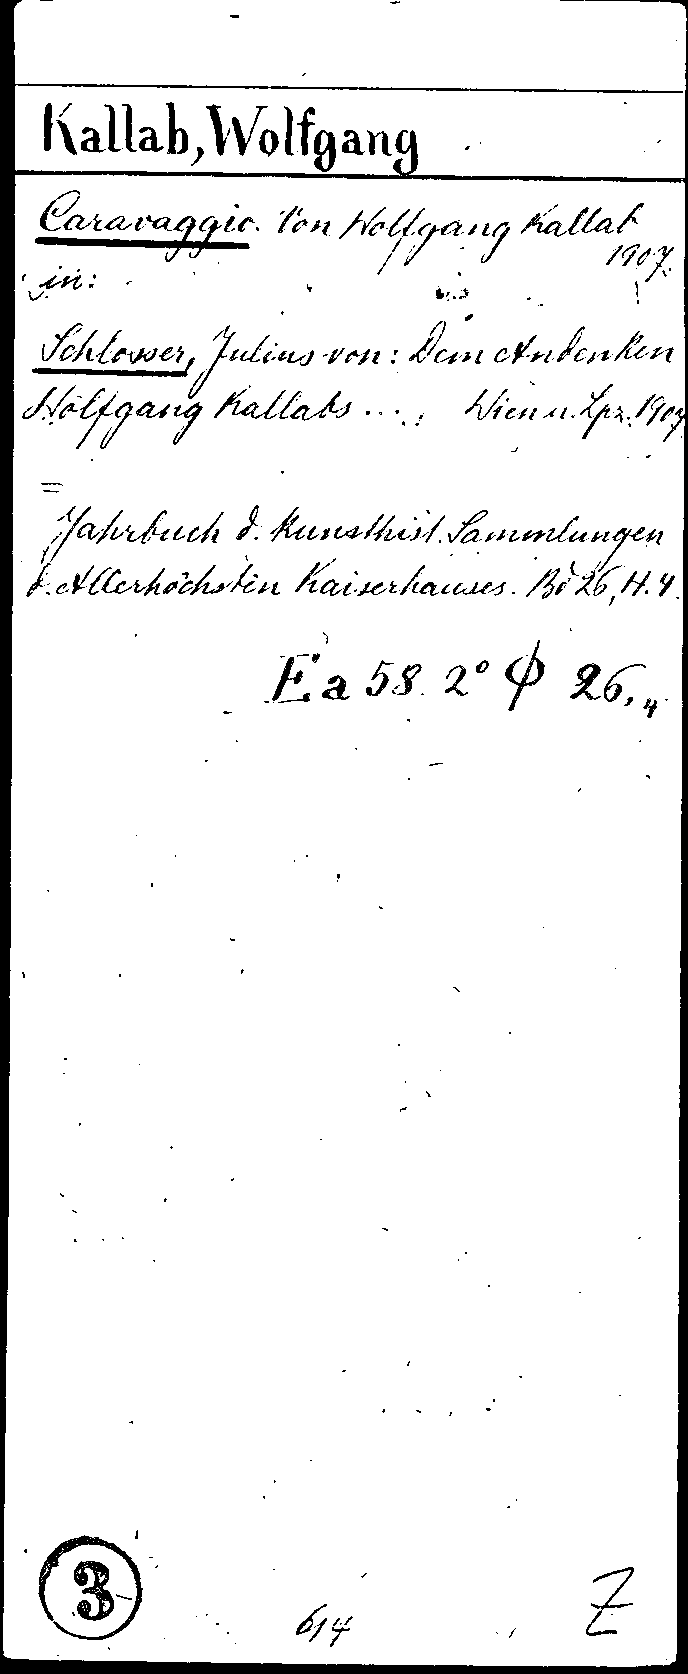 Kallab, Wolfgang
Caravaggio. Von Wolfgang Kallab
1907.
in:
Schlosser, Julius von: Dem Andenken
Wolfgang Kallabs ..., Wien u. Lpz. 1907
=
Jahrbuch d. kunsthist. Sammlungen
d. Allerhöchsten Kaiserhauses. Bd 26, H. 4.
Ea 58 2° Φ 26,4
3
614
Z